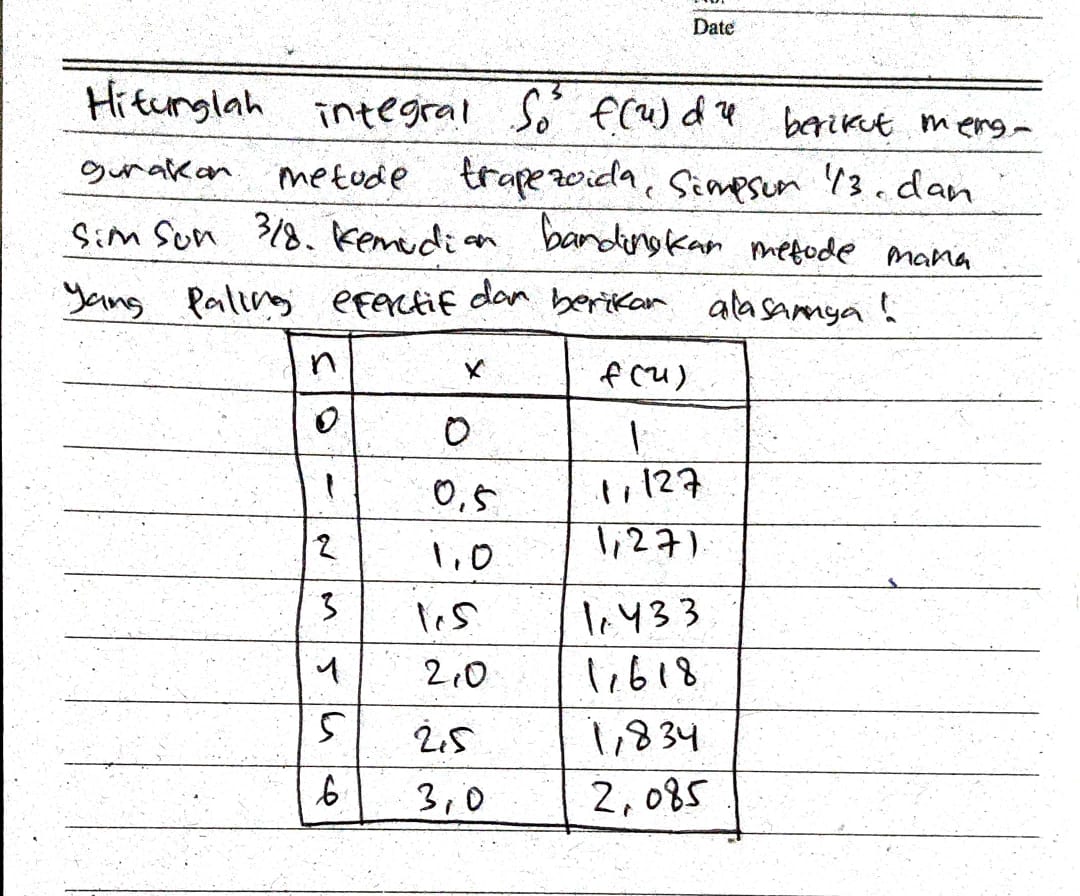 Date
Hitunglah integral ∫₀³ f(x) dx berikut meng-
gunakan metode trapezoida, Simpson 1/3, dan
Simson 3/8. Kemudian bandingkan metode mana
yang Paling efectif dan berikan alasannya!
n x f(x)
0 0 1
1 0,5 1,127
2 1,0 1,271
3 1,5 1,433
4 2,0 1,618
5 2,5 1,834
6 3,0 2,085